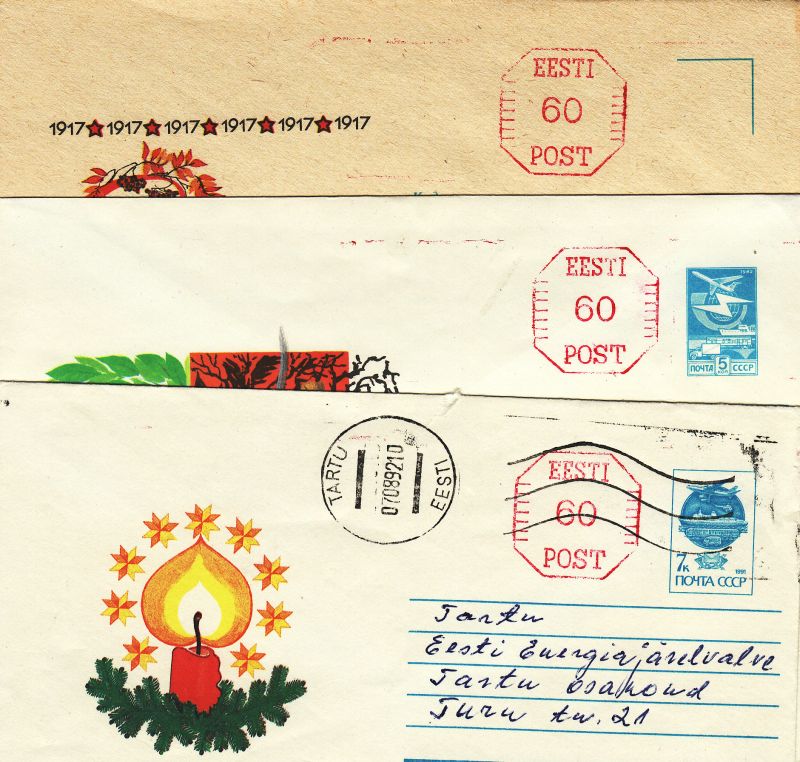 EESTI
60
POST
1917★1917★1917★1917★1917★1917
EESTI
60
POST
ПОЧТА 5 КОП СССР
TARTU
07089210
EESTI
EESTI
60
POST
7к
1991
ПОЧТА СССР
Tartu
Eesti Energiajärelvalve
Tartu osakond
Turu tn. 21